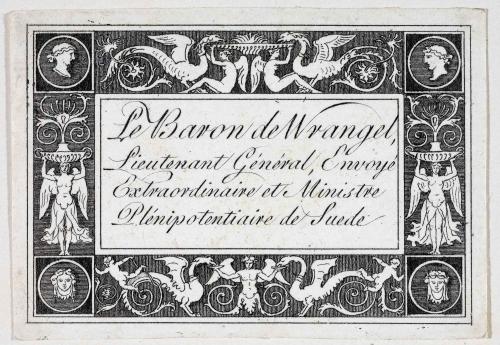 Le Baron de Wrangel,
Lieutenant Général, Envoyé
Extraordinaire et Ministre
Plénipotentiaire de Suede